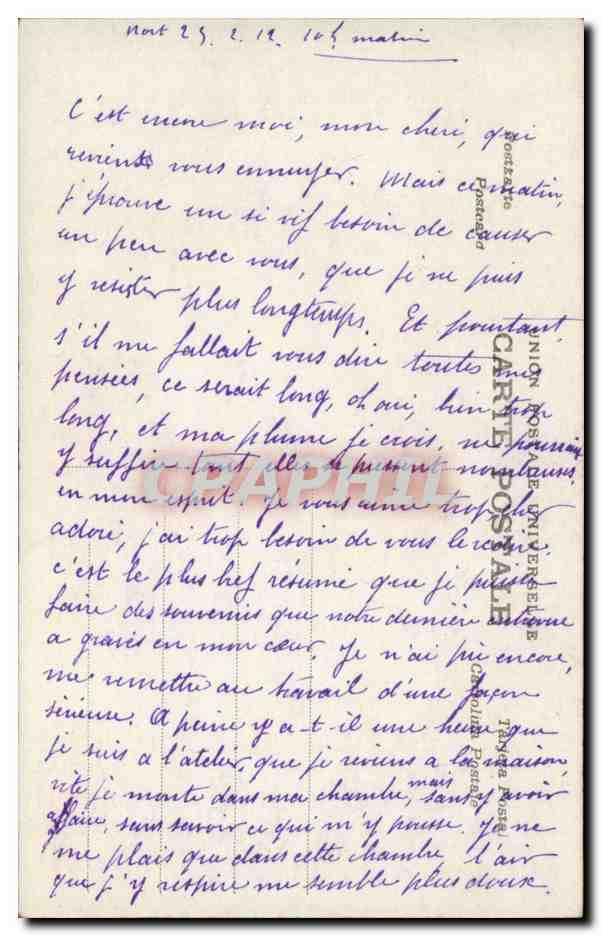 Mort 25. 2. 12. 10h matin
C'est encore moi, mon chéri, qui
reviens vous ennuyer. Mais ce matin,
j'éprouve un si vif besoin de causer
un peu avec vous, que je ne puis
y resister plus longtemps. Et pourtant,
s'il me fallait vous dire toutes mes
pensées, ce serait long, oh oui, bien trop
long, et ma plume je crois, ne pourrait
y suffire tant elles se pressent nombreuses
en mon esprit. Je vous aime trop, cher
adoré, j'ai trop besoin de vous le redire.
c'est le plus bref résumé que je puisse
faire des souvenirs que notre dernière
a gravés en mon cœur. Je n'ai pu encore,
me remettre au travail d'une façon
sérieuse. A peine y a-t-il une heure que
je suis a l'atelier, que je reviens a la maison,
vite je monte dans ma chambre, mais sans y avoir
affaire, sans savoir ce qui m'y pousse. Je ne
me plais que dans cette chambre, l'air
que j'y respire me semble plus doux.
Postkarte
Postcard
UNION POSTALE UNIVERSELLE
CARTE POSTALE
Cartolina Postale
Tarjeta Postal
CPAPHIL